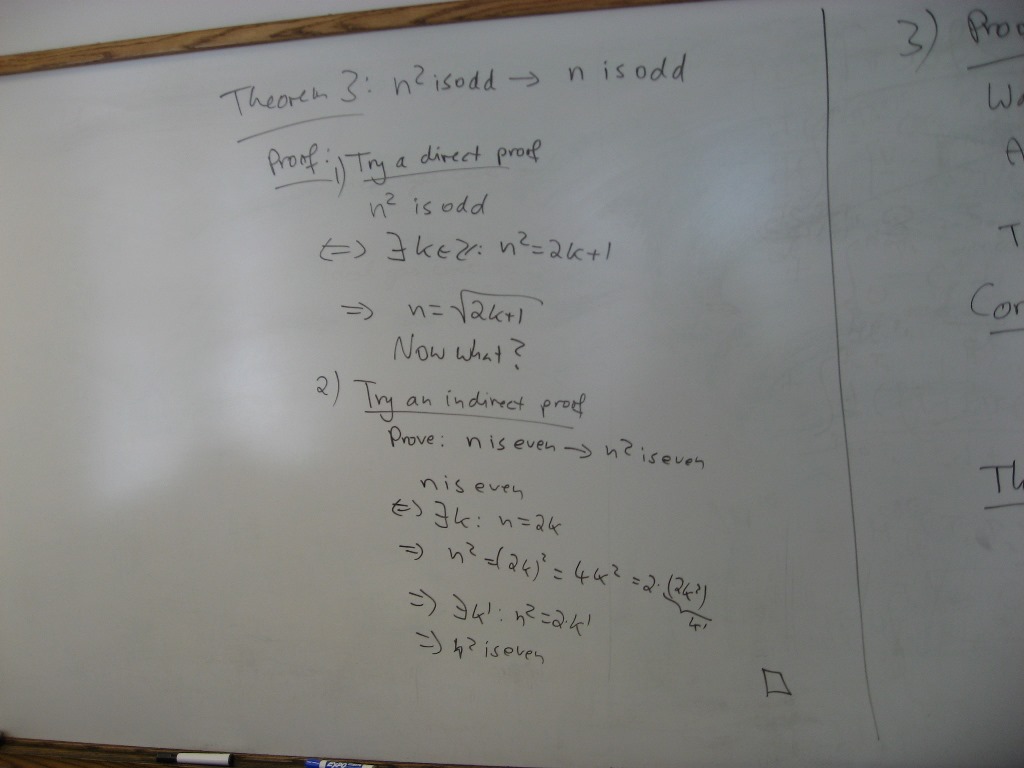 Theorem 3: n² is odd → n is odd
Proof: 1) Try a direct proof
n² is odd
⇔ ∃k∈ℤ: n²=2k+1
⇒ n=√2k+1
Now what?
2) Try an indirect proof
Prove: n is even → n² is even
n is even
⇔ ∃k: n=2k
⇒ n²=(2k)²=4k²=2·(2k²)
k'
⇒ ∃k': n²=2·k'
⇒ n² is even
□
3)